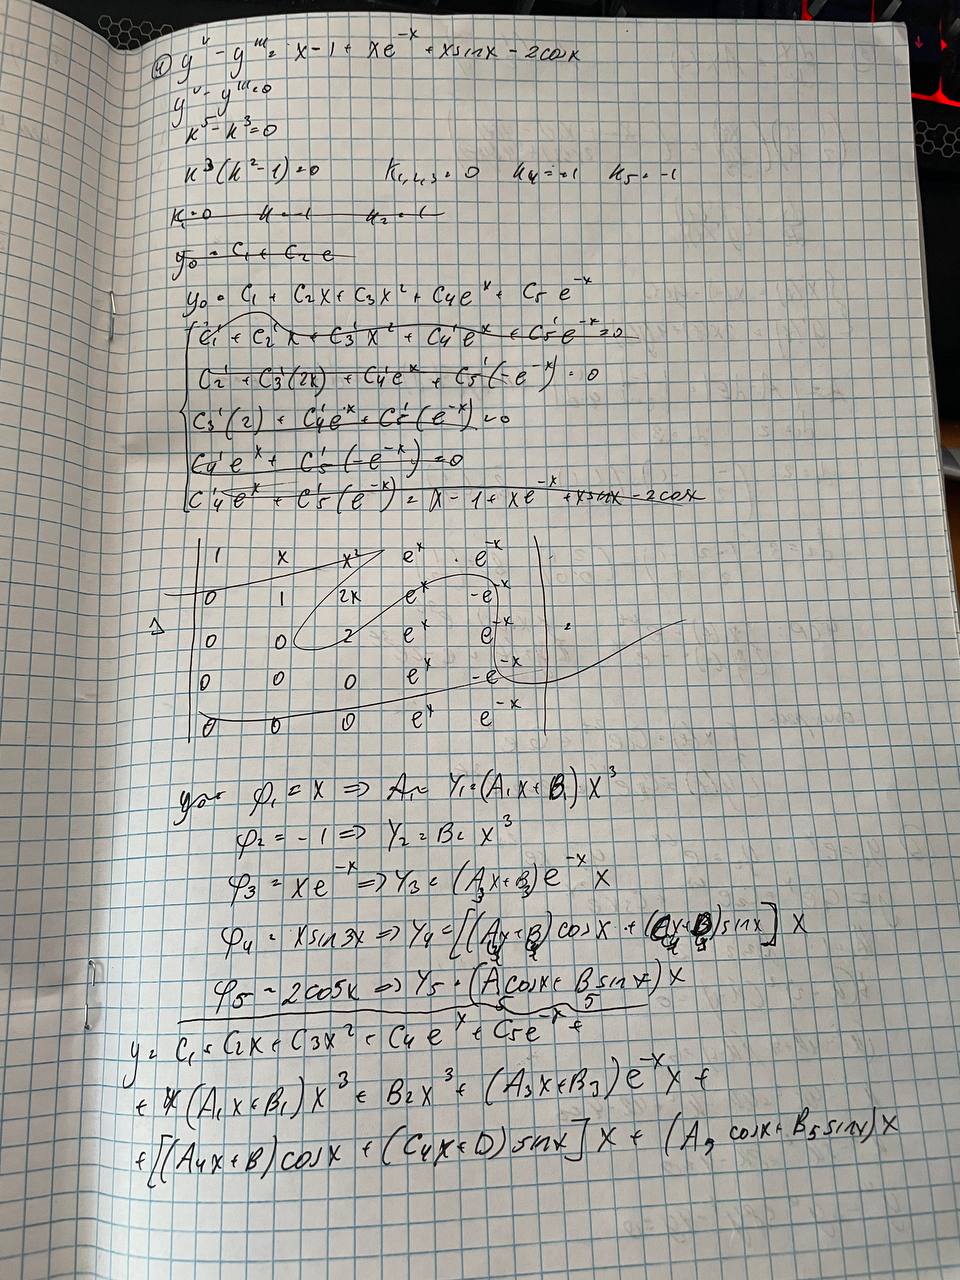 ④ y^V - y^III = x - 1 + xe^-x + x sinx - 2cosx
y^V - y^III = 0
k^5 - k^3 = 0
k^3(k^2 - 1) = 0 k_1,2,3 = 0 k_4 = 1 k_5 = -1
y_0 = C_1 + C_2 e
y_0 = C_1 + C_2x + C_3x^2 + C_4e^x + C_5e^-x
C_1' + C_2'x + C_3'x^2 + C_4'e^x + C_5'e^-x = 0
C_2' + C_3'(2x) + C_4'e^x + C_5'(-e^-x) = 0
C_3'(2) + C_4'e^x + C_5'(e^-x) = 0
C_4'e^x + C_5'(-e^-x) = 0
C_4'e^x + C_5'(e^-x) = x - 1 + xe^-x + x sinx - 2cosx
1 x x^2 e^x e^-x
0 1 2x e^x -e^-x
Δ 0 0 2 e^x e^-x =
0 0 0 e^x -e^-x
0 0 0 e^x e^-x
φ_1 = x => Y_1 = (A_1x + B_1)x^3
φ_2 = -1 => Y_2 = B_2 x^3
φ_3 = xe^-x => Y_3 = (A_3x + B_3)e^-x x
φ_4 = x sin3x => Y_4 = [(A_4x + B_4)cosx + (x + )sinx] x
φ_5 = 2cosx => Y_5 = (A_5cosx + B_5sinx)x
y = C_1 + C_2x + C_3x^2 + C_4e^x + C_5e^-x +
+ (A_1x + B_1)x^3 + B_2x^3 + (A_3x + B_3)e^-x x +
+ [(A_4x + B)cosx + (C_4x + D)sinx] x + (A_5 cosx + B_5 sinx)x